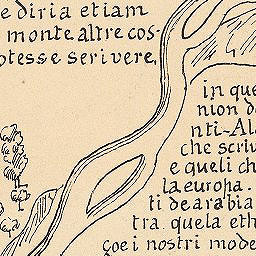 e diria etiam
monte altre cos-
otesse scrivere,
in que
nion de
nti-Al
che scriv
e queli ch
la europa.
ti de arabia
tra quela eth
çoe i nostri mode